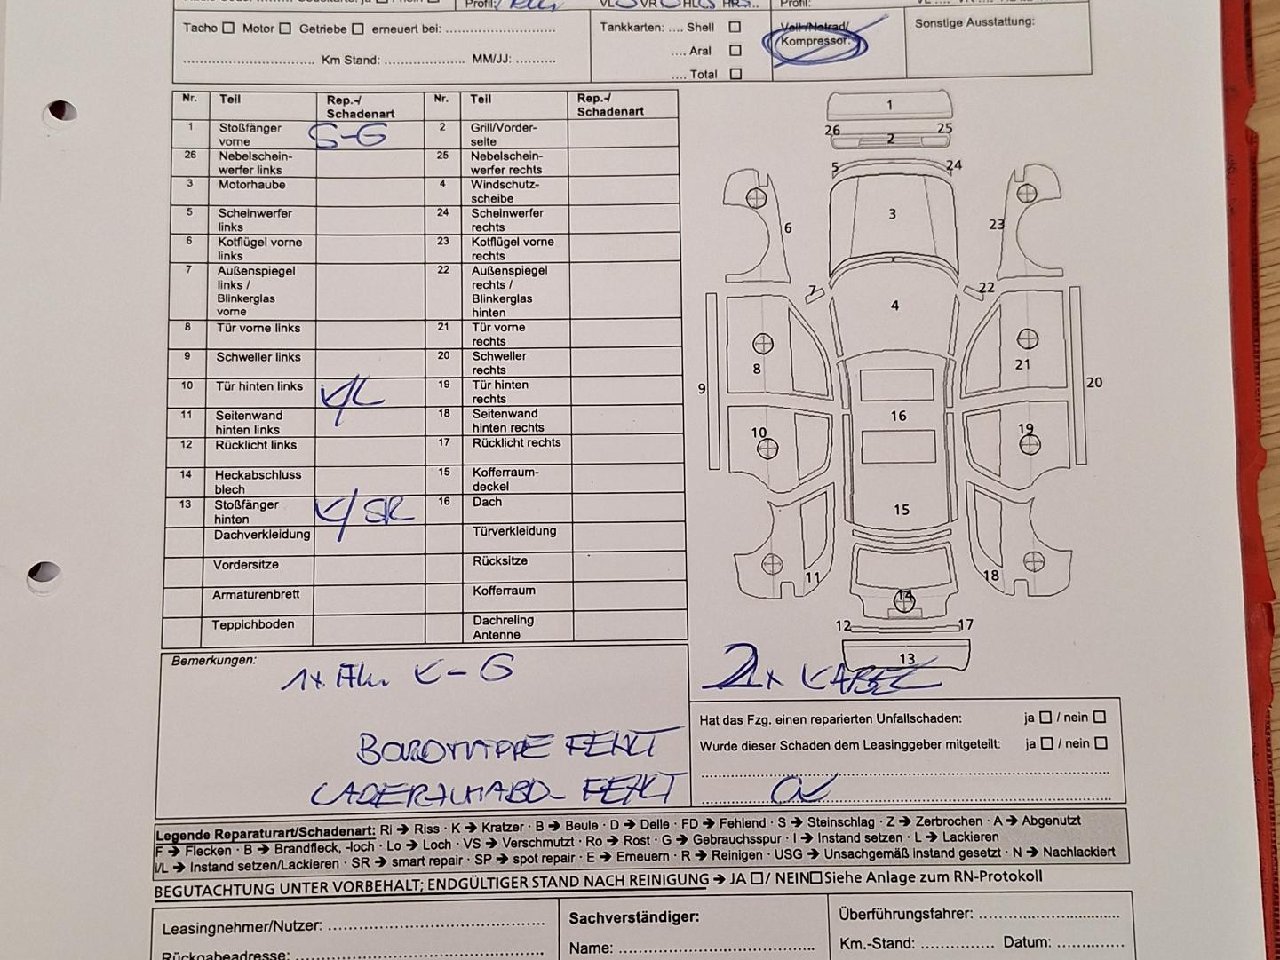 Profil:
VL VR HL HR
Profil:
Tacho ☐ Motor ☐ Getriebe ☐ erneuert bei: ........................
Tankkarten: .... Shell ☐
Voll-/Notrad/
Sonstige Ausstattung:
Kompressor.
.... Aral ☐
........................ Km Stand: ............... MM/JJ: ..........
.... Total ☐
Nr. Teil Rep.-/ Schadenart Nr. Teil Rep.-/ Schadenart
1 Stoßfänger vorne G-G 2 Grill/Vorder-seite
26 Nebelschein-werfer links 25 Nebelschein-werfer rechts
3 Motorhaube 4 Windschutz-scheibe
5 Scheinwerfer links 24 Scheinwerfer rechts
6 Kotflügel vorne links 23 Kotflügel vorne rechts
7 Außenspiegel links / Blinkerglas vorne 22 Außenspiegel rechts / Blinkerglas hinten
8 Tür vorne links 21 Tür vorne rechts
9 Schweller links 20 Schweller rechts
10 Tür hinten links K/L 19 Tür hinten rechts
11 Seitenwand hinten links 18 Seitenwand hinten rechts
12 Rücklicht links 17 Rücklicht rechts
14 Heckabschluss blech 15 Kofferraum-deckel
13 Stoßfänger hinten K/SR 16 Dach
Dachverkleidung Türverkleidung
Vordersitze Rücksitze
Armaturenbrett Kofferraum
Teppichboden Dachreling Antenne
1
26 25
2
5 24
3
6 23
7 22
4
8 21
9 20
16
10 19
15
11 18
14
12 17
13
Bemerkungen:
1x Alu K-G
2x KABEL
BORDMAPPE FEHLT
LADERAUMABD- FEHLT
Hat das Fzg. einen reparierten Unfallschaden: ja ☐ / nein ☐
Wurde dieser Schaden dem Leasinggeber mitgeteilt: ja ☐ / nein ☐
Legende Reparaturart/Schadenart: RI → Riss · K → Kratzer · B → Beule · D → Delle · FD → Fehlend · S → Steinschlag · Z → Zerbrochen · A → Abgenutzt
F → Flecken · B → Brandfleck, -loch · Lo → Loch · VS → Verschmutzt · Ro → Rost · G → Gebrauchsspur · I → Instand setzen · L → Lackieren
I/L → Instand setzen/Lackieren · SR → smart repair · SP → spot repair · E → Erneuern · R → Reinigen · USG → Unsachgemäß instand gesetzt · N → Nachlackiert
BEGUTACHTUNG UNTER VORBEHALT; ENDGÜLTIGER STAND NACH REINIGUNG → JA ☐ / NEIN ☐ Siehe Anlage zum RN-Protokoll
Leasingnehmer/Nutzer: ........................
Sachverständiger:
Überführungsfahrer: ........................
Rückgabeadresse: ........................
Name: ........................
Km.-Stand: ............ Datum: ............